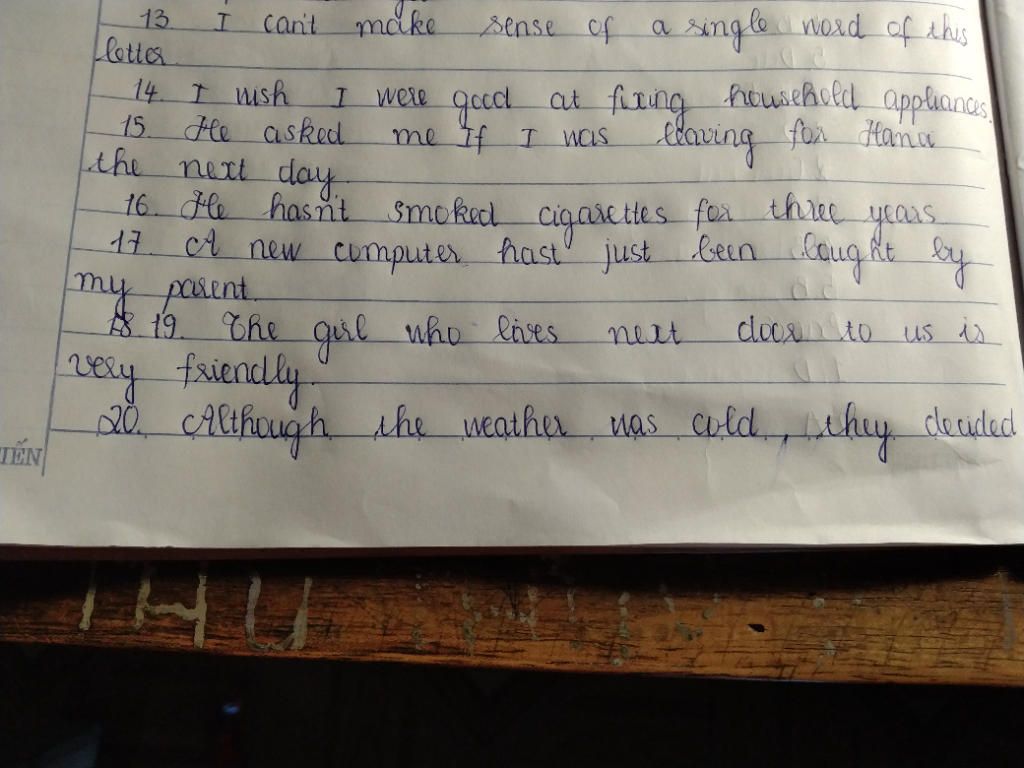 13. I can't make sense of a single word of this
letter
14. I wish I were good at fixing household appliances.
15. He asked me If I was leaving for Hana
the next day.
16. He hasn't smoked cigarettes for three years
17. A new computer hast just been bought by
my parent.
18 19. The girl who lives next door to us is
very friendly.
20. Although the weather was cold, they decided
IẾN
THU